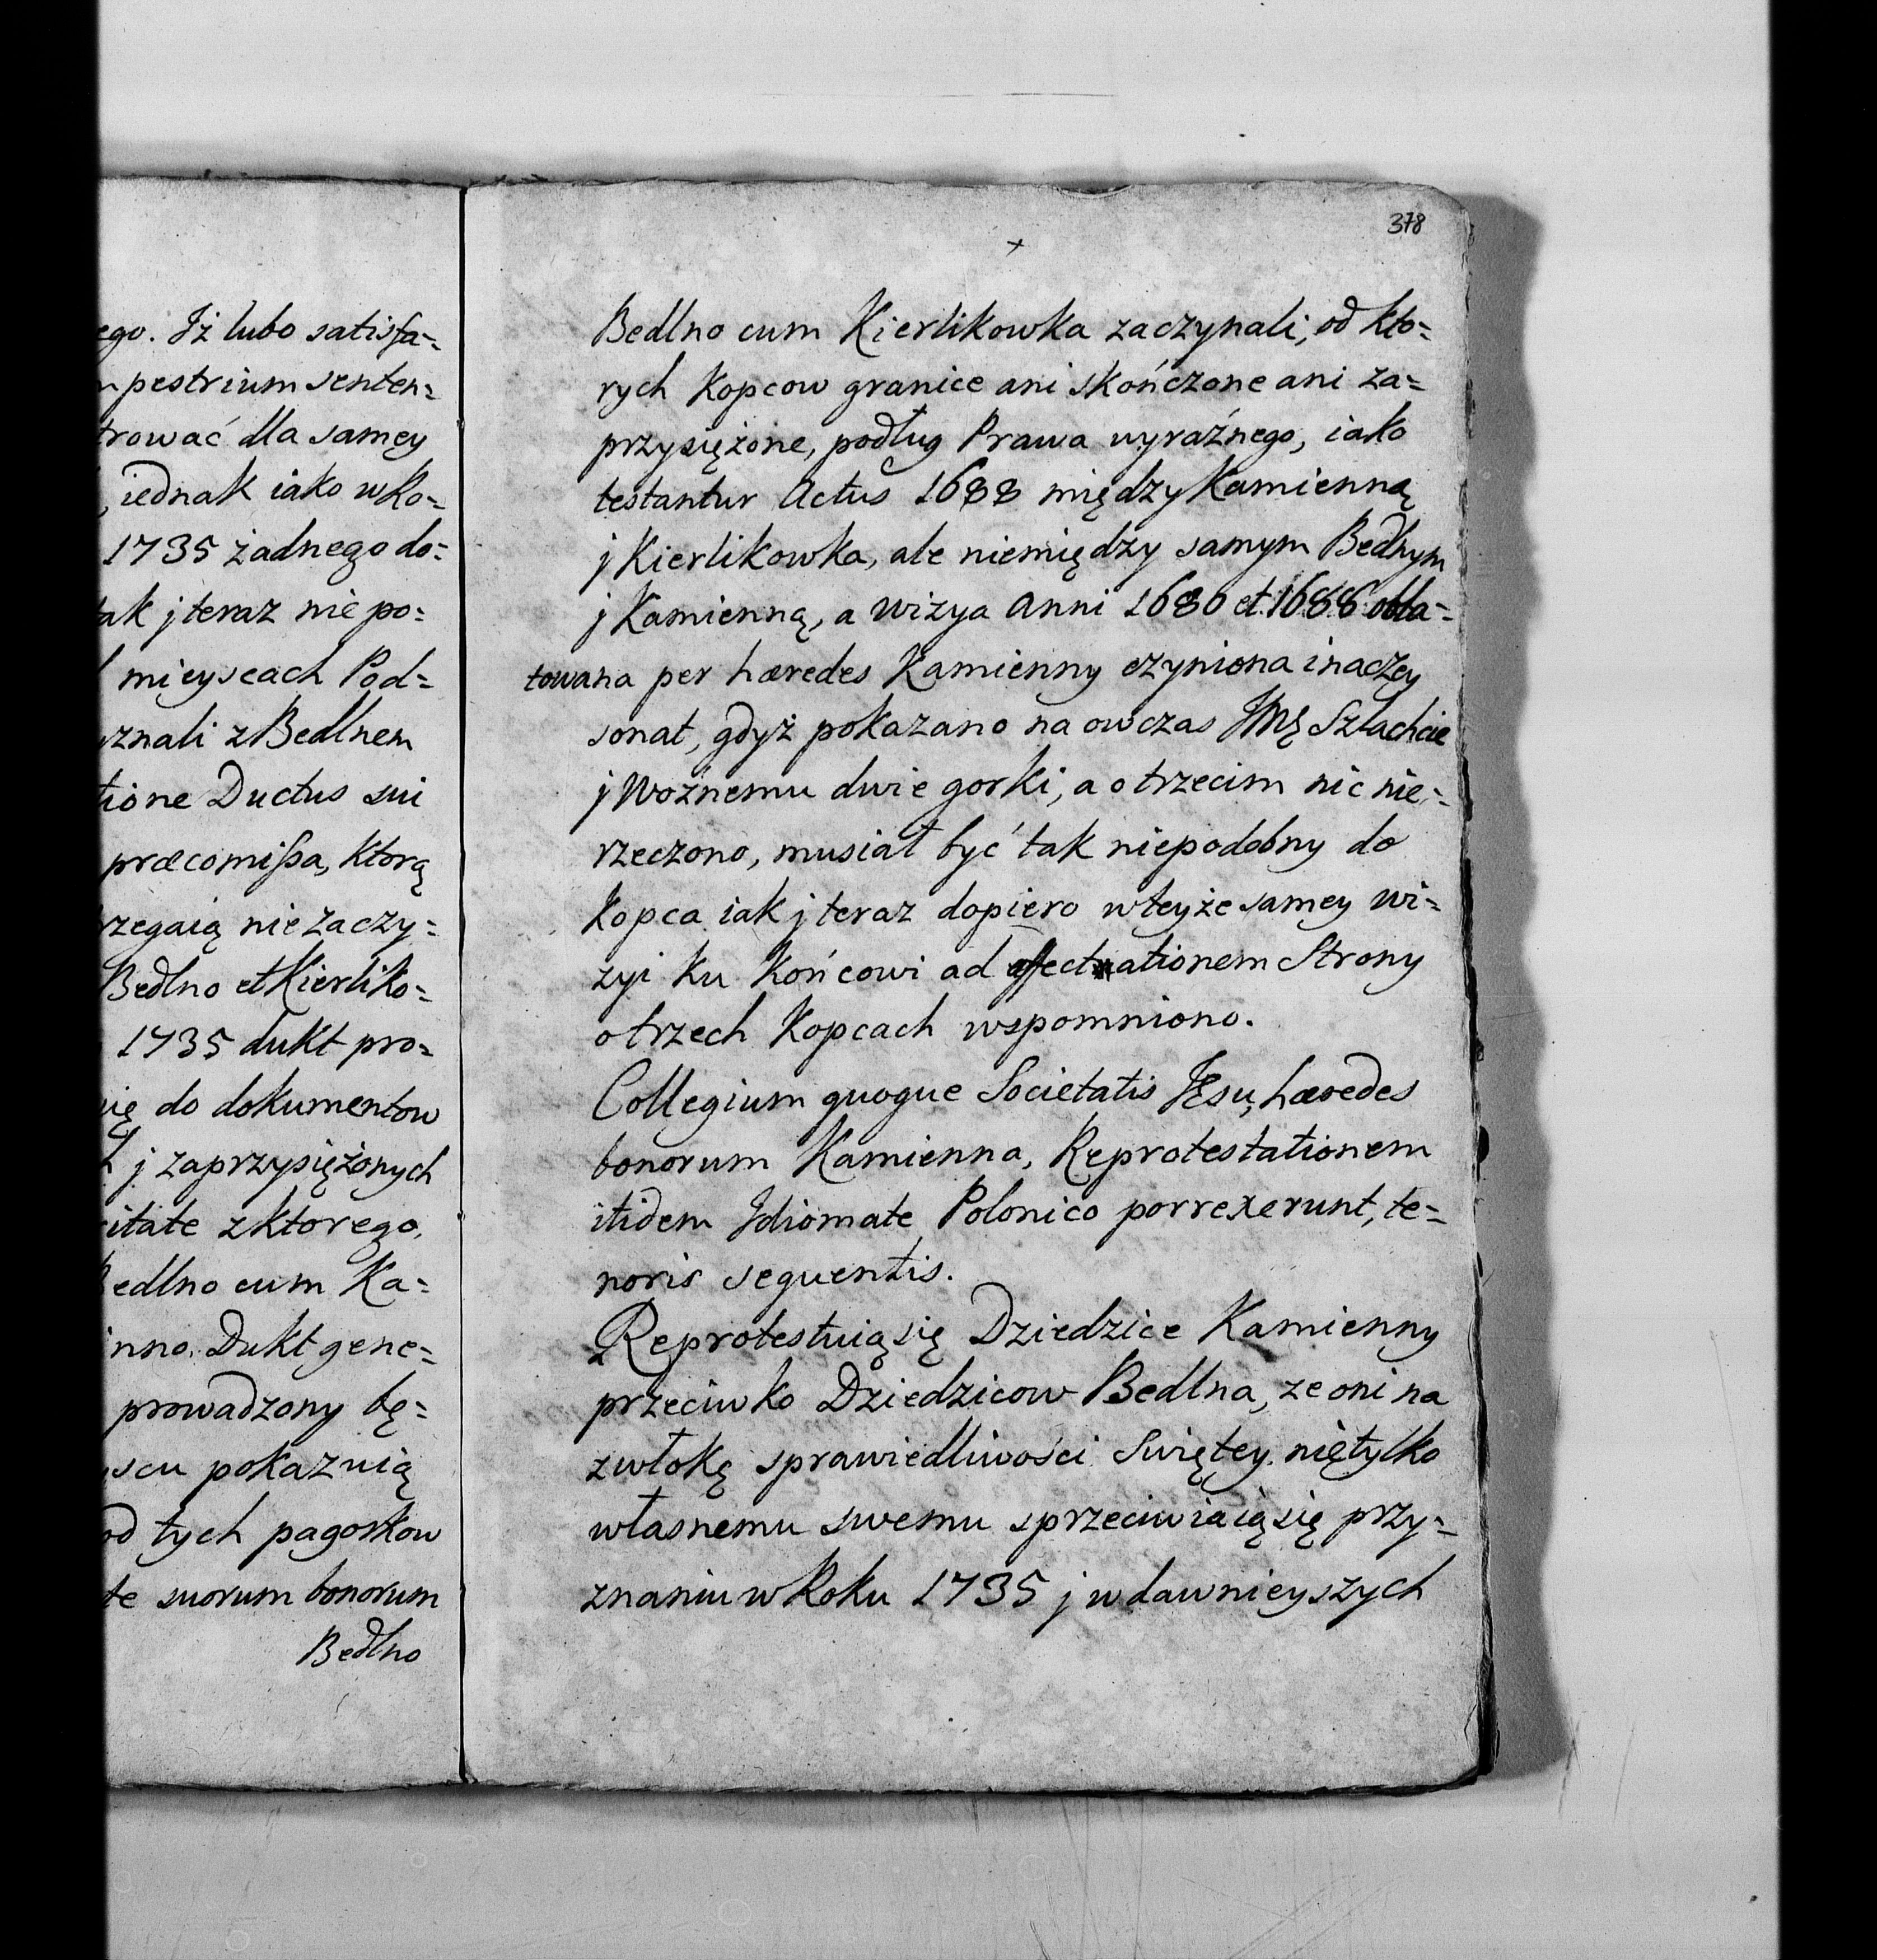 ego. Iż lubo satisfa=
pestrium senten=
trować dla samey
, iednak iako w Ro=
1735 żadnego do=
tak j teraz nie po=
mieyscach Pod=
znali z Bedlnem
tione Ductus sui
præcomissa, ktorą
rzegaią nie zaczy=
Bedlno et Kierliko=
1735 dukt pro=
ię do dokumentow
j zaprzysiężonych
itate z ktorego,
Bedlno cum Ka=
inno. Dukt gene=
prowadzony bę=
scu pokazuią
od tych pagorkow
te suorum bonorum
Bedlno
378
Bedlno cum Kierlikowka zaczynali, od kto=
rych kopcow granice ani skończone ani za=
przysiężone, podług Prawa wyraźnego, iako
testantur Actus 1688 między Kamienną
j Kierlikowka, ale niemiędzy samym Bedlnym
j Kamienną, a Wizya Anni 1686 et 1688 obla=
towana per hæredes Kamienny czyniona inaczey
sonat, gdyż pokazano na owczas JMę Szlachcie
j Woźnemu dwie gorki, a o trzecim nic nie=
rzeczono, musiał być tak niepodobny do
kopca iak j teraz dopiero wteyże samey wi=
zyi ku końcowi ad affectationem Strony
o trzech kopcach wspomniono.
Collegium quoque Societatis JEsu, hæredes
bonorum Kamienna, Reprotestationem
itidem Idiomate Polonico porrexerunt, te=
noris sequentis.
Reprotestuią się Dziedzice Kamienny
przeciwko Dziedzicow Bedlna, ze oni na
zwłokę sprawiedliwości Swiętey nietylko
własnemu swemu sprzeciwiaią się przy=
znaniu w Roku 1735 j w dawnieyszych